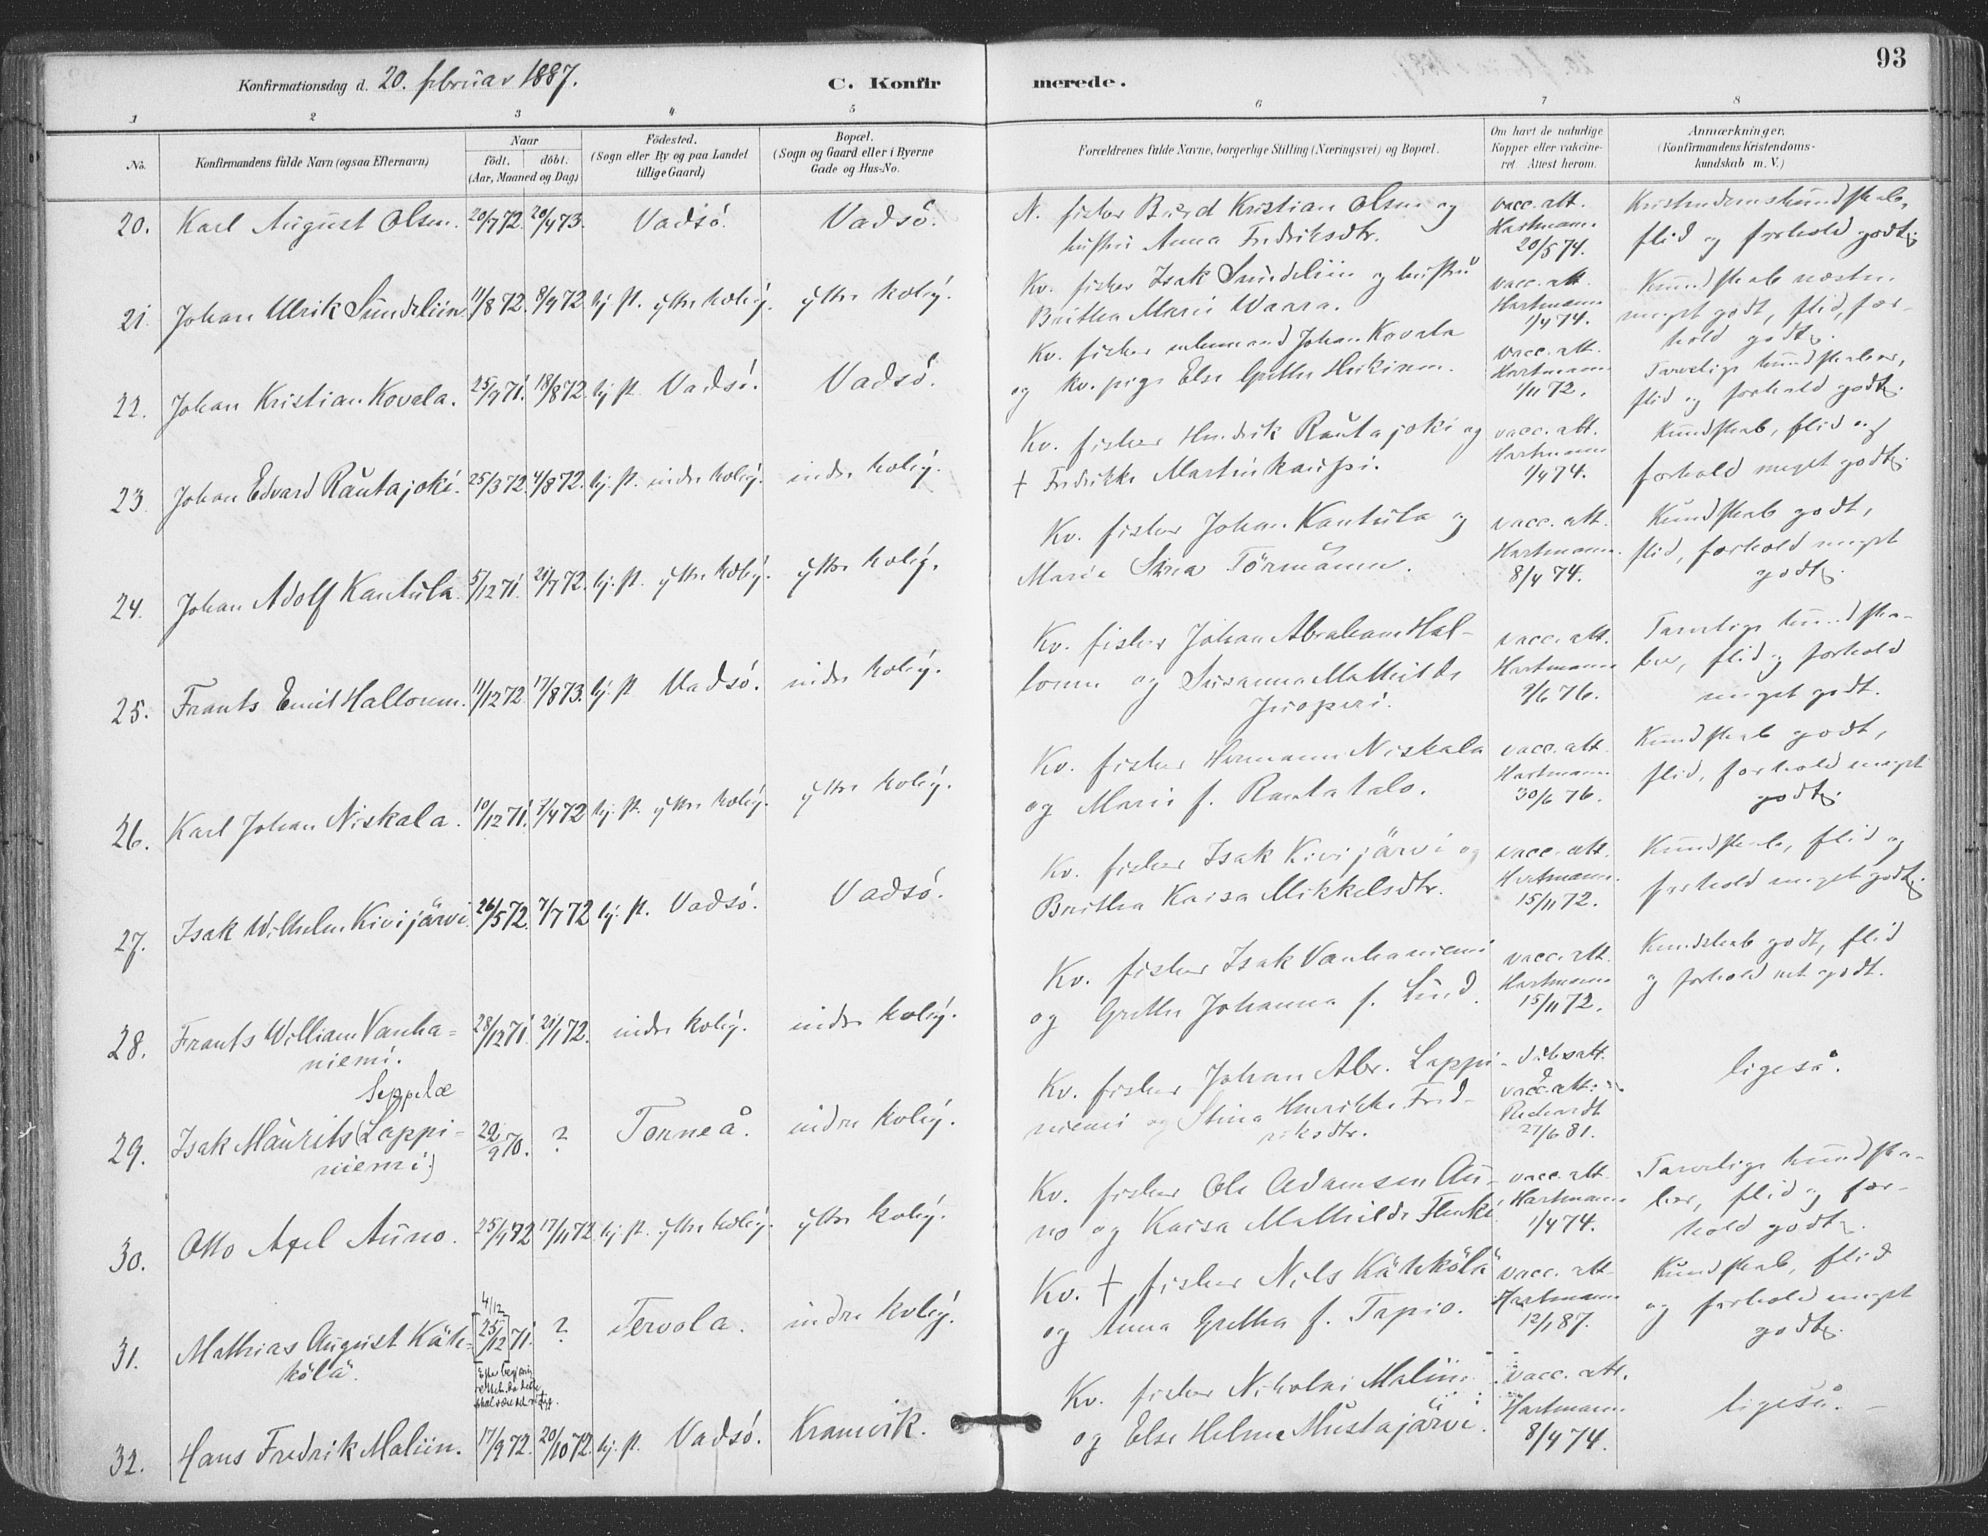 93
Konfirmationsdag d. 20. februar 1887.
C. Konfirmerede.
1 2 3 4 5 6 7 8
No.
Konfirmandens fulde Navn (ogsaa Efternavn)
Naar
födt. döbt.
(Aar, Maaned og Dag)
Födested.
(Sogn eller By og paa Landet
tillige Gaard)
Bopæl.
(Sogn og Gaard eller i Byerne
Gade og Hus-No.
Forældrenes fulde Navne, borgerlige Stilling (Næringsvei) og Bopæl.
Om havt de naturlige
Kopper eller vakcine-
ret. Attest herom.
Anmærkninger.
(Konfirmandens Kristendoms-
kundskab m. V.)
20. Karl August Olsen. 20/7 72. 20/4 73. Vadsö. Vadsö.
N. fisker Bierd Kristian Olsen og
hustru Anna Fredriksdtr.
vacc. att.
Hartmann.
20/5 74.
Kristendomskundskab,
flid og forhold godt.
21. Johan Ulrik Sundeliin 11/8 72. 8/9 72. hj. st. ytre koleg. ytre koleg.
Kv. fisker Isak Sundeliin og hustru
Britha Marie Waara.
vacc. att.
Hartmann
1/4 74.
Kundskab næsten
meget godt, flid, for-
hold godt.
22. Johan Kristian Kovala. 25/9 71. 18/8 72. hj. st. Vadsö. Vadsö.
Kv. fisker Johan Kovala
og kv. pige Else Grethe Heikinen.
vacc. att.
Hartmann
1/11 72.
Tarvelige kundskaber,
flid og forhold godt.
23. Johan Edvard Rautajoki. 25/3 72. 4/8 72. hj. st. indre koleg. indre koleg.
Kv. fisker Hendrik Rautajoki og
† Fredrikke Martinkauppi.
vacc. att.
Hartmann
1/4 74.
Kundskab, flid og
forhold meget godt.
24. Johan Adolf Kantula. 5/12 71. 21/7 72. hj. st. ytre koleg. ytre koleg.
Kv. fisker Johan Kantula og
Maria Stina Törmänen.
vacc. att.
Hartmann.
8/4 74.
Kundskab godt,
flid, forhold meget
godt.
25. Frants Emil Hallonen. 11/12 72. 17/8 73. hj. st. Vadsö. indre koleg.
Kv. fisker Johan Abraham Hal-
lonen og Susanna Mathilde
vacc. att.
Hartmann
9/6 76.
Tarvelige kundska-
ber, flid og forhold
meget godt.
26. Karl Johan Niskala. 10/12 71. 7/4 72 hj. st. ytre koleg. ytre koleg.
Kv. fisker Hermann Niskala
og Marie f. Rautatalo.
vacc. att.
Hartmann.
30/6 76.
Kundskab godt,
flid, forhold meget
godt.
27. Isak Wilhelm Kivijärvi. 26/5 72. 7/7 72. hj. st. Vadsö. Vadsö.
Kv. fisker Isak Kivijärvi og
Britha Kaisa Mikkelsdtr.
vacc. att.
Hartmann.
15/11 72.
Kundskab, flid og
forhold meget godt.
28. Frants William Vanha- 28/12 71. 21/1 72. indre koleg. indre koleg.
niemi.
Kv. fisker Isak Vanhaniemi
og Grethe Johanna f. Lund.
vacc. att.
Hartmann
15/11 72.
Kundskab godt, flid
og forhold net godt.
Seppelæ
29. Isak Maurits (Lappi- 29/9 70. ? Torneå. indre koleg.
niemi)
Kv. fisker Johan Abr. Lappi-
niemi og Stina Henrikke Fred-
riksdtr.
döbsatt. ?
vacc. att.
27/6 81.
ligeså.
30. Otto Axel Auno. 25/9 72 17/11 72. hj. st. ytre koleg. ytre koleg.
Kv. fisker Ole Adamsen Au-
no og Kaisa Mathilde
vacc. att.
Hartmann
1/4 74.
Tarvelige kundska-
ber, flid og for-
hold godt.
4/12
31. Mathias August Käh- [25/12] 71. ? Tervola. indre koleg.
kölä.
Kv. † fisker Nils Kähkölä
og Anna Gretha f. Tapio.
vacc. att.
Hartmann
12/1 87.
Kundskab, flid
og forhold meget
godt.
32. Hans Fredrik Maliin. 17/9 72. 20/10 72. hj. st. Vadsö. Kramvik.
Kv. fisker Nikolai Maliin
og Else Helene Mustajärvi.
vacc. att.
Hartmann
8/4 74.
ligeså.